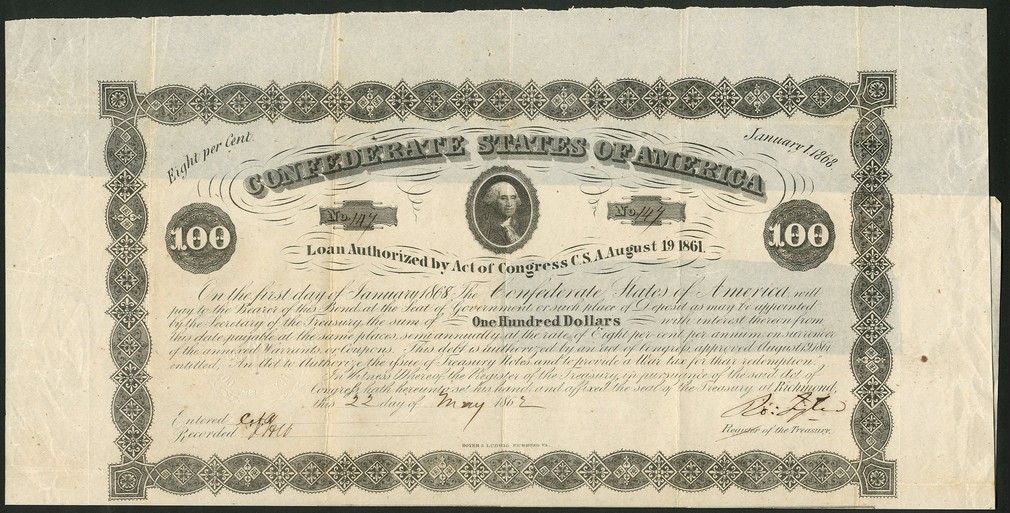 Eight per Cent.
January 1. 1868.
CONFEDERATE STATES OF AMERICA
No. 147
No. 147
100
100
Loan Authorized by Act of Congress C.S.A August 19 1861.
On the first day of January 1868 The Confederate States of America will
pay to the Bearer of this Bond at the Seat of Government or such place of Deposit as may be appointed
by the Secretary of the Treasury, the sum of One Hundred Dollars with interest thereon from
this date payable at the same places, semi annually, at the rate of Eight per cent per annum on surrender
of the annexed Warrants or Coupons. This debt is authorized by an act of Congress, approved August 19, 1861
entitled, An Act to Authorize the issue of Treasury Notes and to provide a War tax for their redemption.
In Witness Whereof, the Register of the Treasury, in pursuance of the said Act of
Congress, hath hereunto set his hand, and affixed the seal of the Treasury at Richmond,
this 22 day of May 1862
Ro: Tyler
Entered
Recorded
Register of the Treasury.
HOYER & LUDWIG, RICHMOND VA.